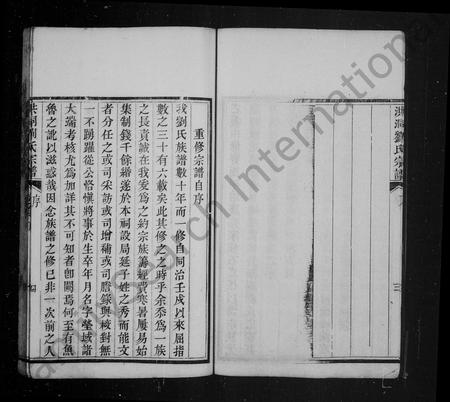 洪洞劉氏宗譜
序
三
重修宗譜自序
我劉氏族譜數十年而一修自同治壬戌以來屈指
數之三十有六載矣此其修之之時乎余忝為一族
之長責誠在我爰為之約宗族籌經費寒暑屢易始
集制錢千餘緡遂於本祠設局延子姓之秀而能文
者分任之或司采訪或司增補或司謄錄與校對無
一不踴躍從公恪慎將事於生卒年月名字塋域諸
大端考核尤為加詳其不可知者卽闕焉何至有魚
魯之訛以滋惑哉因念族譜之修已非一次前之人
洪洞劉氏宗譜
序
四
FamilySearch International